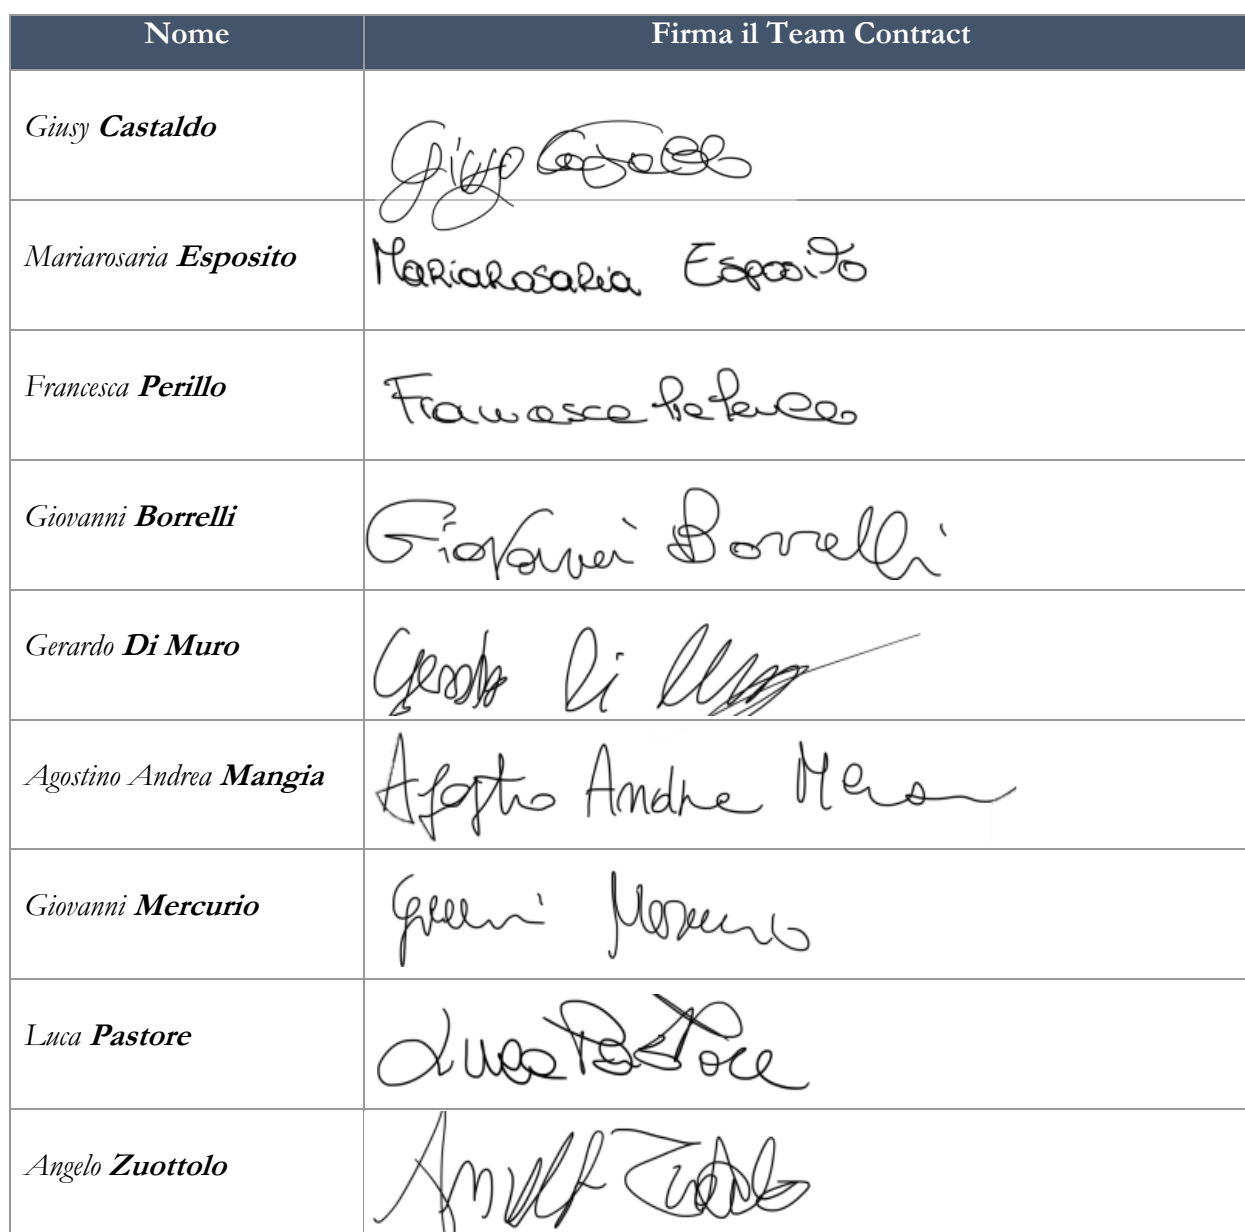 Nome Firma il Team Contract
Giusy Castaldo Giusy Castaldo
Mariarosaria Esposito Mariarosaria Esposito
Francesca Perillo Francesca
Giovanni Borrelli Giovanni Borrelli
Gerardo Di Muro Gerardo Di
Agostino Andrea Mangia Andrea
Giovanni Mercurio
Luca Pastore Luca Pastore
Angelo Zuottolo